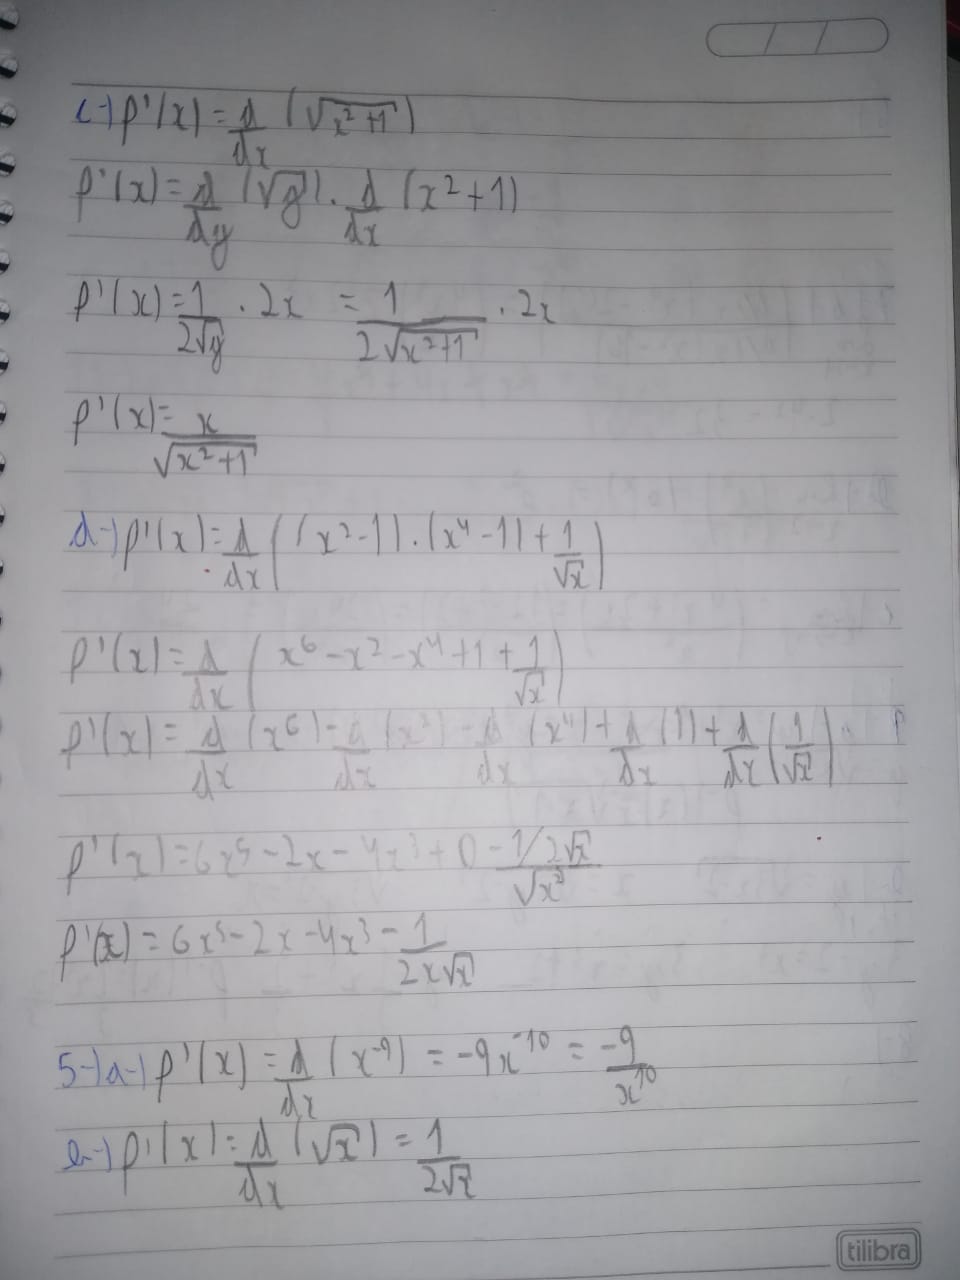 c-) f'(x) = d/dx (√(x²+1))
f'(x) = d/dy (√y) . d/dx (x²+1)
f'(x) = 1/(2√y) . 2x = 1/(2√(x²+1)) . 2x
f'(x) = x/√(x²+1)
d-) f'(x) = d/dx ((x²-1).(x⁴-1) + 1/√x)
f'(x) = d/dx (x⁶-x²-x⁴+1+1/√x)
f'(x) = d/dx (x⁶) - d/dx (x²) - d/dx (x⁴) + d/dx (1) + d/dx (1/√x)
f'(x) = 6x⁵-2x-4x³+0-(1/2√x)/√x²
f'(x) = 6x⁵-2x-4x³-1/(2x√x)
5-) a-) f'(x) = d/dx (x⁻⁹) = -9x⁻¹⁰ = -9/x¹⁰
b-) f'(x) = d/dx (√x) = 1/(2√x)
tilibra